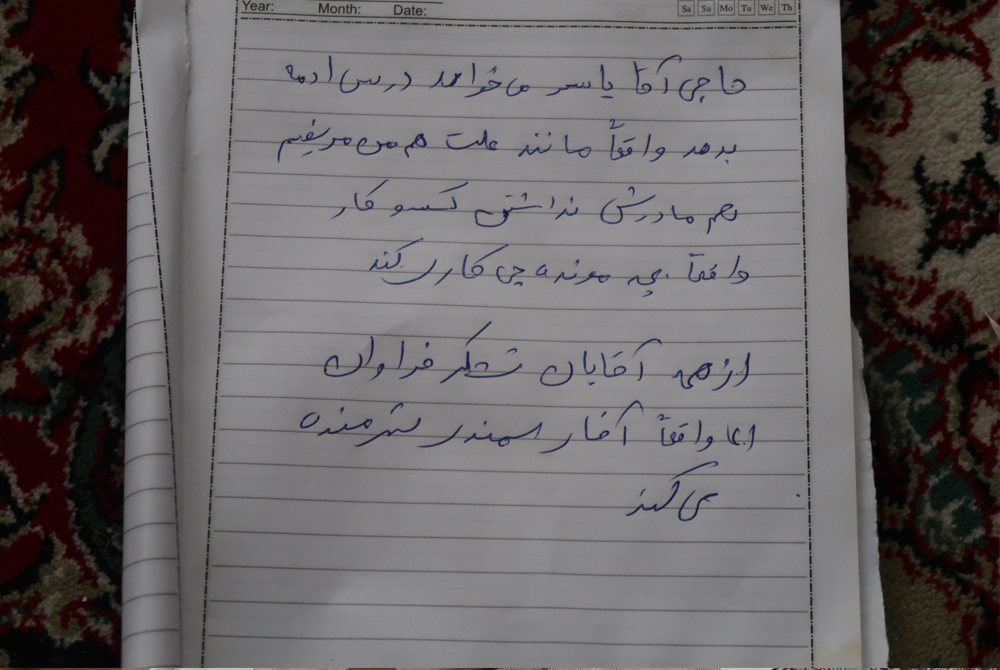 Year: Month: Date: Sa Su Mo Tu We Th
حاجی آقا یاسر می خواهد درس ادمه
بدهد واقعاً مانند علت هم من مریضیم
هم مادرش نداشتن کسو کار
واقعاً چی مونده چی کاری کند
از همه آقایان تشکر فراوان
اما واقعاً آقار اسمندر شرمنده
می کند